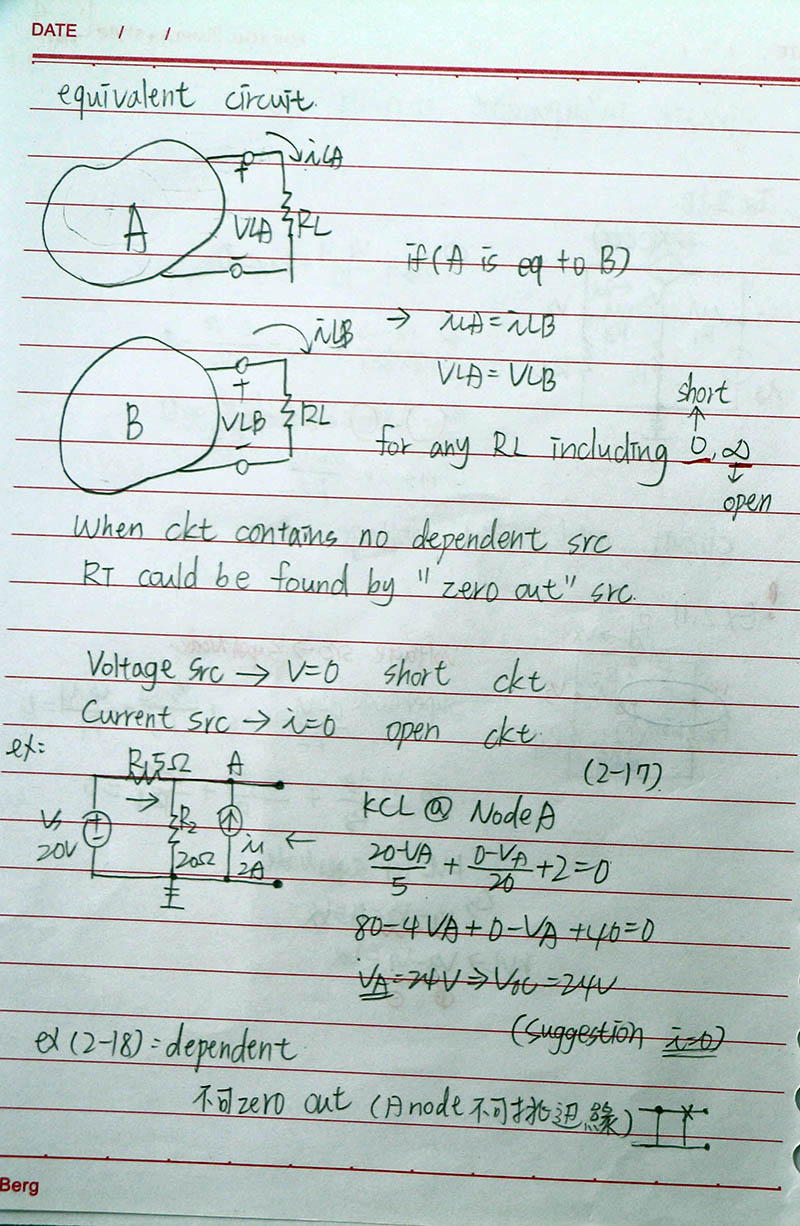 DATE / /
equivalent circuit.
iLA
+
A
VLA
RL
-
if (A is eq to B)
→ iLA = iLB
VLA = VLB
iLB
+
B
VLB
RL
-
short
for any RL including 0, ∞
open
When ckt contains no dependent src
RT could be found by "zero out" src.
Voltage src → V=0 short ckt
Current src → i=0 open ckt.
(2-17)
ex:
R1 5Ω A
Vs
20V
R2
20Ω
2A
KCL @ Node A
20-VA/5 + 0-VA/20 + 2 = 0
80-4VA+0-VA+40=0
VA=24V ⇒ Voc=24V
(suggestion i=0)
ex (2-18) = dependent
不可zero out (A node 不可挑边緣)
Berg